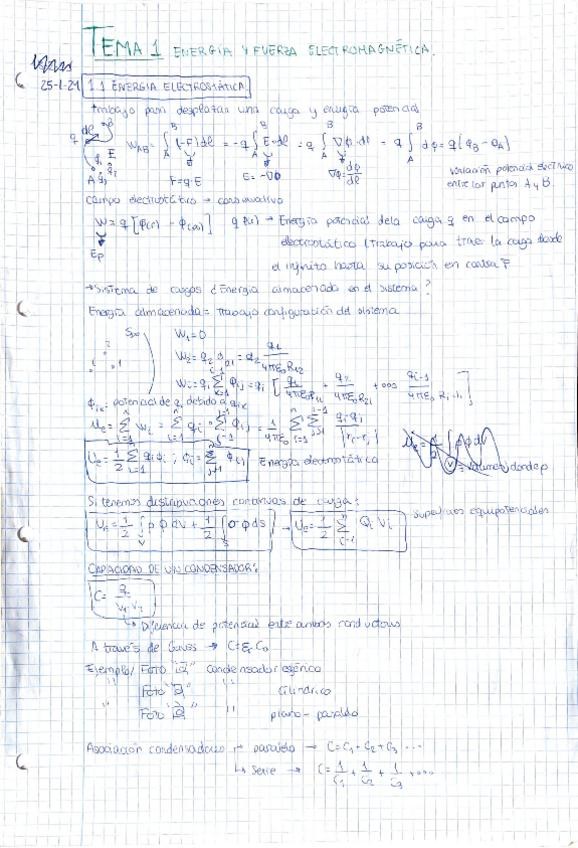 TEMA 1 ENERGIA Y FUERZA ELECTROMAGNÉTICA.
25-1-21 1.1 ENERGIA ELECTROSTÁTICA
trabajo para desplazar una carga y energia potencial
W_AB = ∫_A^B (-F)dl = -q∫_A^B E·dl = q∫_A^B ∇φ·dl = q∫_A^B dφ = q(φ_B - φ_A)
F=q·E E=-∇φ ∇φ=dφ/dl
Variación potencial eléctrico
entre los puntos A y B.
Campo electrostático → conservativo
W = q[φ(r) - φ(∞)] qφ(r) → Energia potencial de la carga q en el campo
Ep electrostático (trabajo para traer la carga desde
el infinito hasta su posición en contra F
→ Sistema de cargas ¿Energia almacenada en el sistema?
Energia almacenada = trabajo configuración del sistema
W₁=0
W₂ = q₂ φ₂₁ = q₂ q₁/4πε₀R₁₂
qᵢ [q₁/4πε₀ + q₂/4πε₀R₂ᵢ + ... qᵢ₋₁/4πε₀]
potencial de qᵢ debido a
Uₑ = 1/2 Σ qᵢφᵢ ; φᵢ = Σ φᵢⱼ Energia electrostática
Si tenemos distribuciones continuas de carga:
Uₑ = 1/2 ∫_V ρ φ dv + 1/2 ∫_S σ φ ds → Uₑ = 1/2 Σ Qᵢ Vᵢ superficies equipotenciales
CAPACIDAD DE UN CONDENSADOR:
C = Q/V₁-V₂
↳ Diferencia de potencial entre ambos conductores
A través de Gauss → C=εᵣ C₀
Ejemplo/ Foto "1" condensador esférico
" Foto " " cilíndrico
" Foto " " plano-paralelo
Asociación condensadores → paralelo → C=C₁+C₂+C₃ ...
↳ serie → C= 1/C₁ + 1/C₂ + 1/C₃ + ....